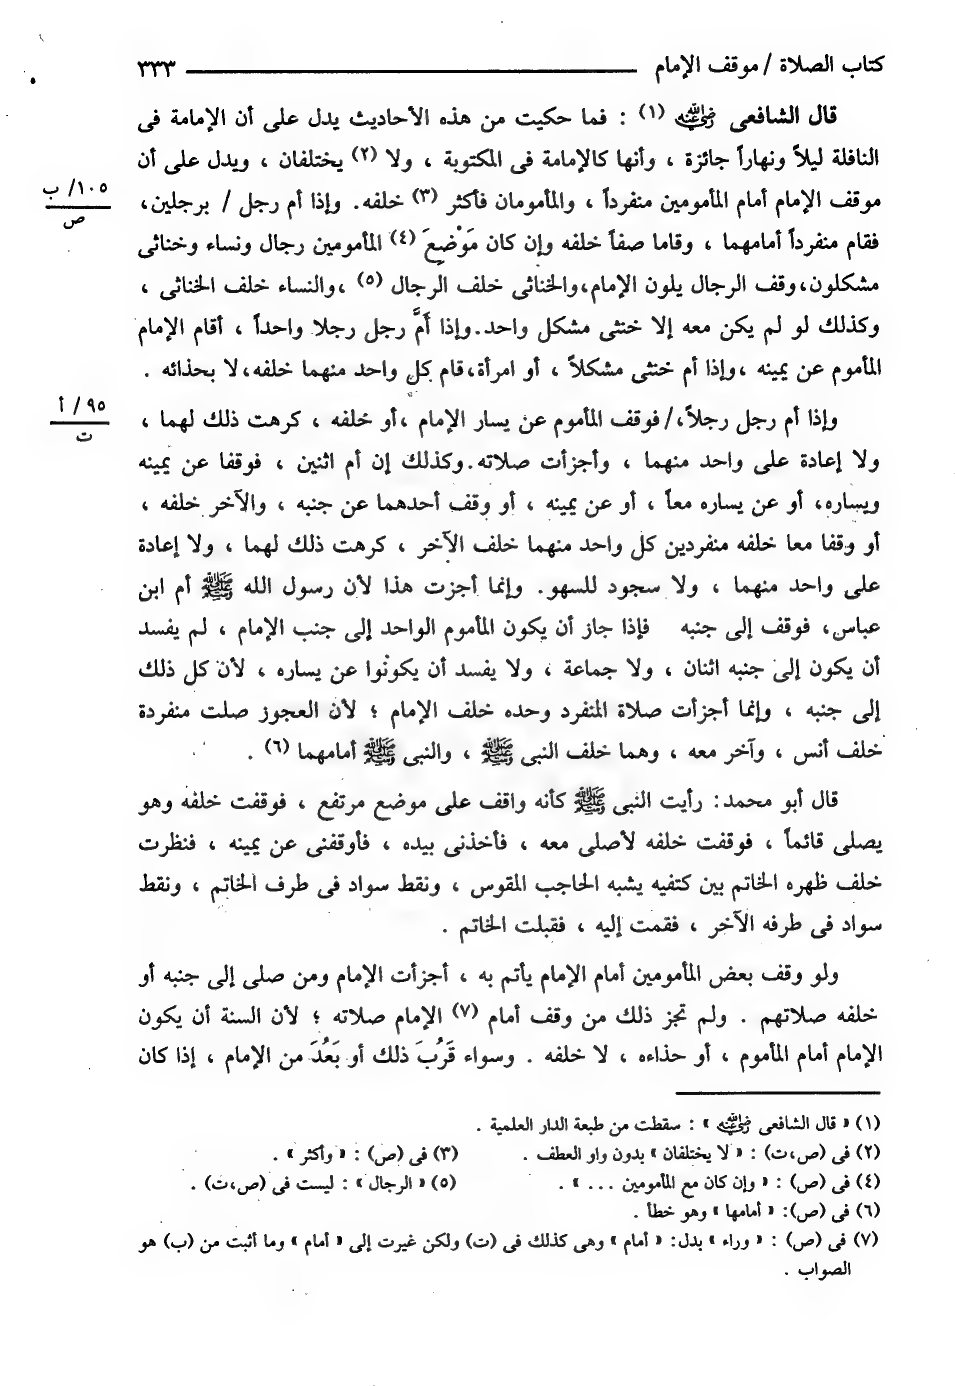 كتاب الصلاة / موقف الإمام ٣٣٣
قال الشافعى رضي الله عنه (١) : فما حكيت من هذه الأحاديث يدل على أن الإمامة فى
النافلة ليلاً ونهاراً جائزة ، وأنها كالإمامة فى المكتوبة ، ولا (٢) يختلفان ، ويدل على أن
موقف الإمام أمام المأمومين منفرداً ، والمأمومان فأكثر (٣) خلفه. وإذا أم رجل / برجلين،
١٠٥/ ب
ص
فقام منفرداً أمامهما ، وقاما صفاً خلفه وإن كان مَوْضِعَ (٤) المأمومين رجال ونساء وخناثى
مشكلون،وقف الرجال يلون الإمام،والخناثى خلف الرجال (٥) ،والنساء خلف الخناثى ،
وكذلك لو لم يكن معه إلا خنثى مشكل واحد.وإذا أَمَّ رجل رجلا واحداً ، أقام الإمام
المأموم عن يمينه ،وإذا أم خنثى مشكلاً ، أو امرأة،قام كل واحد منهما خلفه،لا بحذائه .
وإذا أم رجل رجلاً،/ فوقف المأموم عن يسار الإمام ،أو خلفه ، كرهت ذلك لهما ،
٩٥ / أ
ت
ولا إعادة على واحد منهما ، وأجزأت صلاته.وكذلك إن أم اثنين ، فوقفا عن يمينه
ويساره، أو عن يساره معاً ، أو عن يمينه ، أو وقف أحدهما عن جنبه ، والآخر خلفه ،
أو وقفا معا خلفه منفردين كل واحد منهما خلف الآخر ، كرهت ذلك لهما ، ولا إعادة
على واحد منهما ، ولا سجود للسهو. وإنما أجزت هذا لأن رسول الله ﷺ أم ابن
عباس، فوقف إلى جنبه فإذا جاز أن يكون المأموم الواحد إلى جنب الإمام ، لم يفسد
أن يكون إلى جنبه اثنان ، ولا جماعة ، ولا يفسد أن يكونُوا عن يساره ، لأن كل ذلك
إلى جنبه ، وإنما أجزأت صلاة المنفرد وحده خلف الإمام ؛ لأن العجوز صلت منفردة
خلف أنس ، وآخر معه ، وهما خلف النبى ﷺ ، والنبى ﷺ أمامهما (٦) .
قال أبو محمد: رأيت النبى ﷺ كأنه واقف على موضع مرتفع ، فوقفت خلفه وهو
يصلى قائماً ، فوقفت خلفه لأصلى معه ، فأخذنى بيده ، فأوقفنى عن يمينه ، فنظرت
خلف ظهره الخاتم بين كتفيه يشبه الحاجب المقوس ، ونقط سواد فى طرف الخاتم ، ونقط
سواد فى طرفه الآخر ، فقمت إليه ، فقبلت الخاتم .
ولو وقف بعض المأمومين أمام الإمام يأتم به ، أجزأت الإمام ومن صلى إلى جنبه أو
خلفه صلاتهم . ولم تجز ذلك من وقف أمام (٧) الإمام صلاته ؛ لأن السنة أن يكون
الإمام أمام المأموم ، أو حذاءه ، لا خلفه . وسواء قَرُبَ ذلك أو بَعُدَ من الإمام ، إذا كان
(١) « قال الشافعى رضي الله عنه » : سقطت من طبعة الدار العلمية .
(٢) فى (ص،ت) : « لا يختلفان » بدون واو العطف . (٣) فى (ص) : « وأكثر » .
(٤) فى (ص) : « وإن كان مع المأمومين ... » . (٥) « الرجال » : ليست فى (ص،ت) .
(٦) فى (ص): « أمامها » وهو خطأ .
(٧) فى (ص) : « وراء » بدل: « أمام » وهى كذلك فى (ت) ولكن غيرت إلى « أمام » وما أثبت من (ب) هو
الصواب .